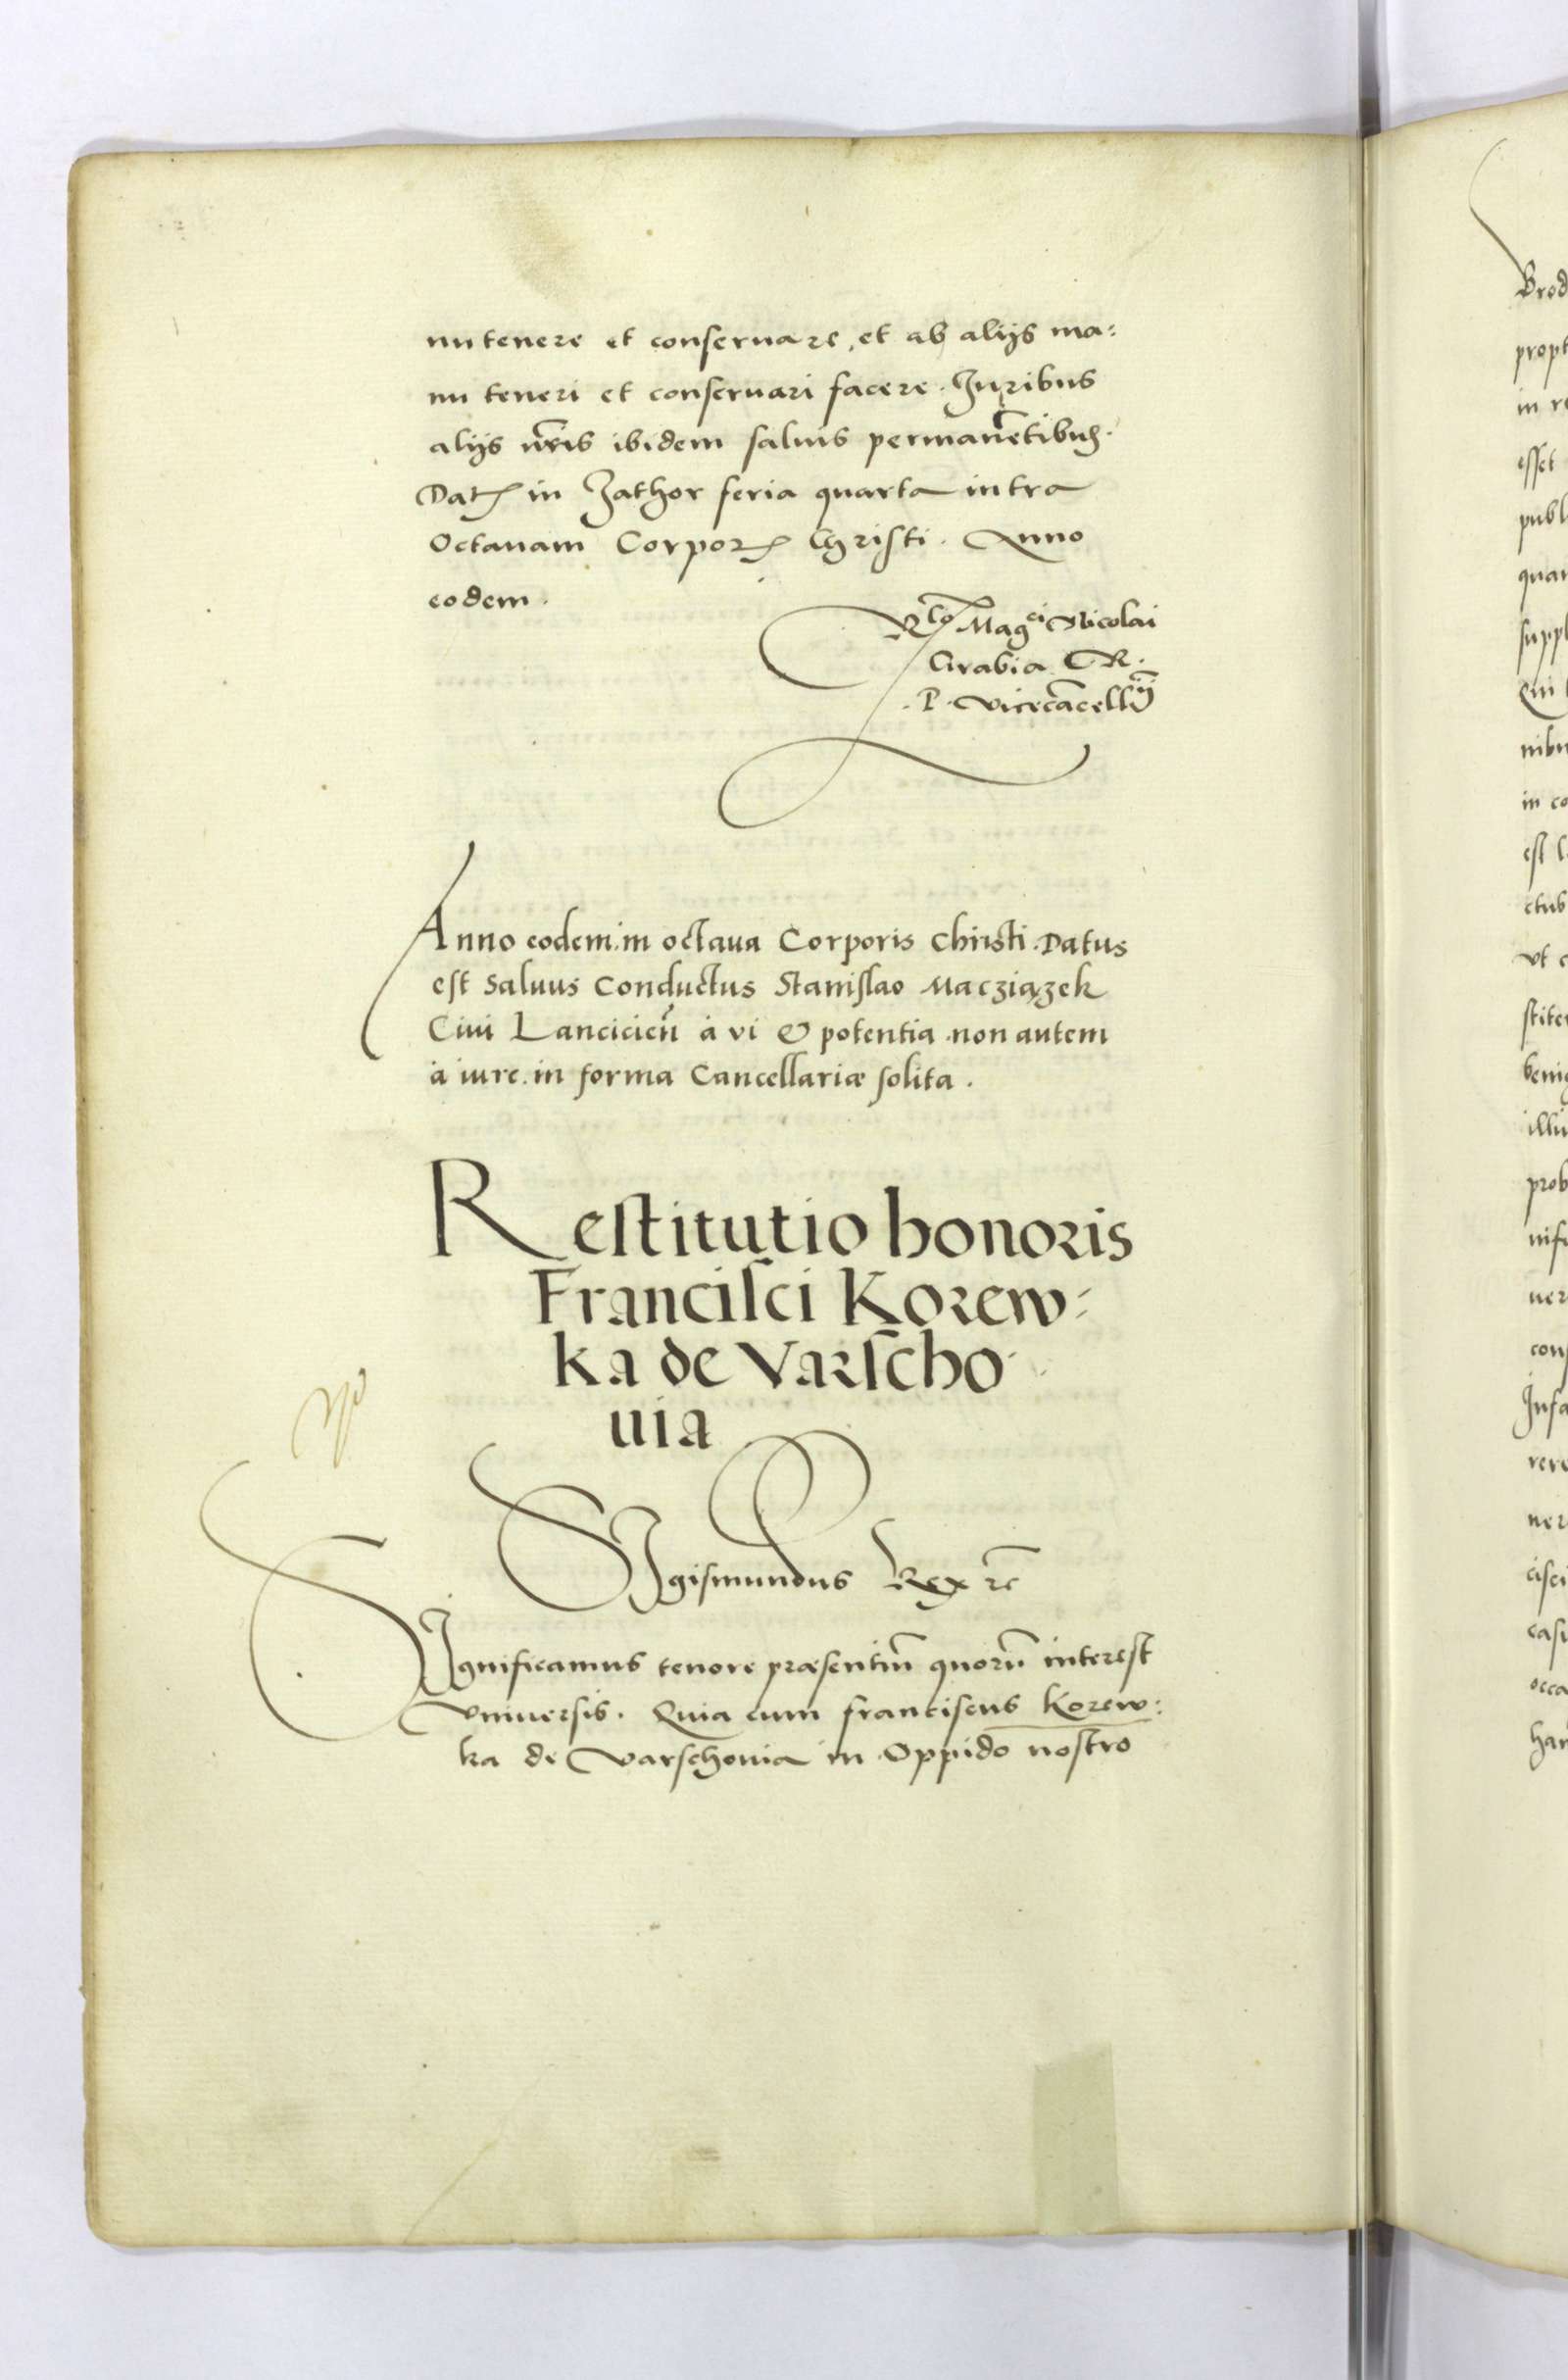 nutenere et conseruare, et ab alijs ma:
nu teneri et conseruari facere. Iuribus
alijs nr̃is ibidem saluis permanẽtibus.
Dat in Zathor feria quarta intra
Octauam Corporis Christi. Anno
eodem.
Rlõ Magci Nicolai
Grabia R.
.P. Vicecãcellij
Anno eodem in octaua Corporis Christi. Datus
est Saluus Conductus Stanislao Macziązek
Ciui Lancicieñ à vi & potentia non autem
à iure. in forma Cancellariæ solita.
Restitutio honoris
Francisci Korew:
ka de Varscho
uia
SIgismundus Rex rc̃
SIgnificamus tenore præsentiũ quorũ interest
Vniuersis. Quia cum franciscus Korew:
ka de Varschouia in Oppido nostro
Brod
propt
in re
esset
publ
quan
suppl
Qui
nibu
in co
est l
ctub
vt c
stite
benig
illu
prob
nifi
uer
con
Infa
rere
ner
cisci
casi
occa
han